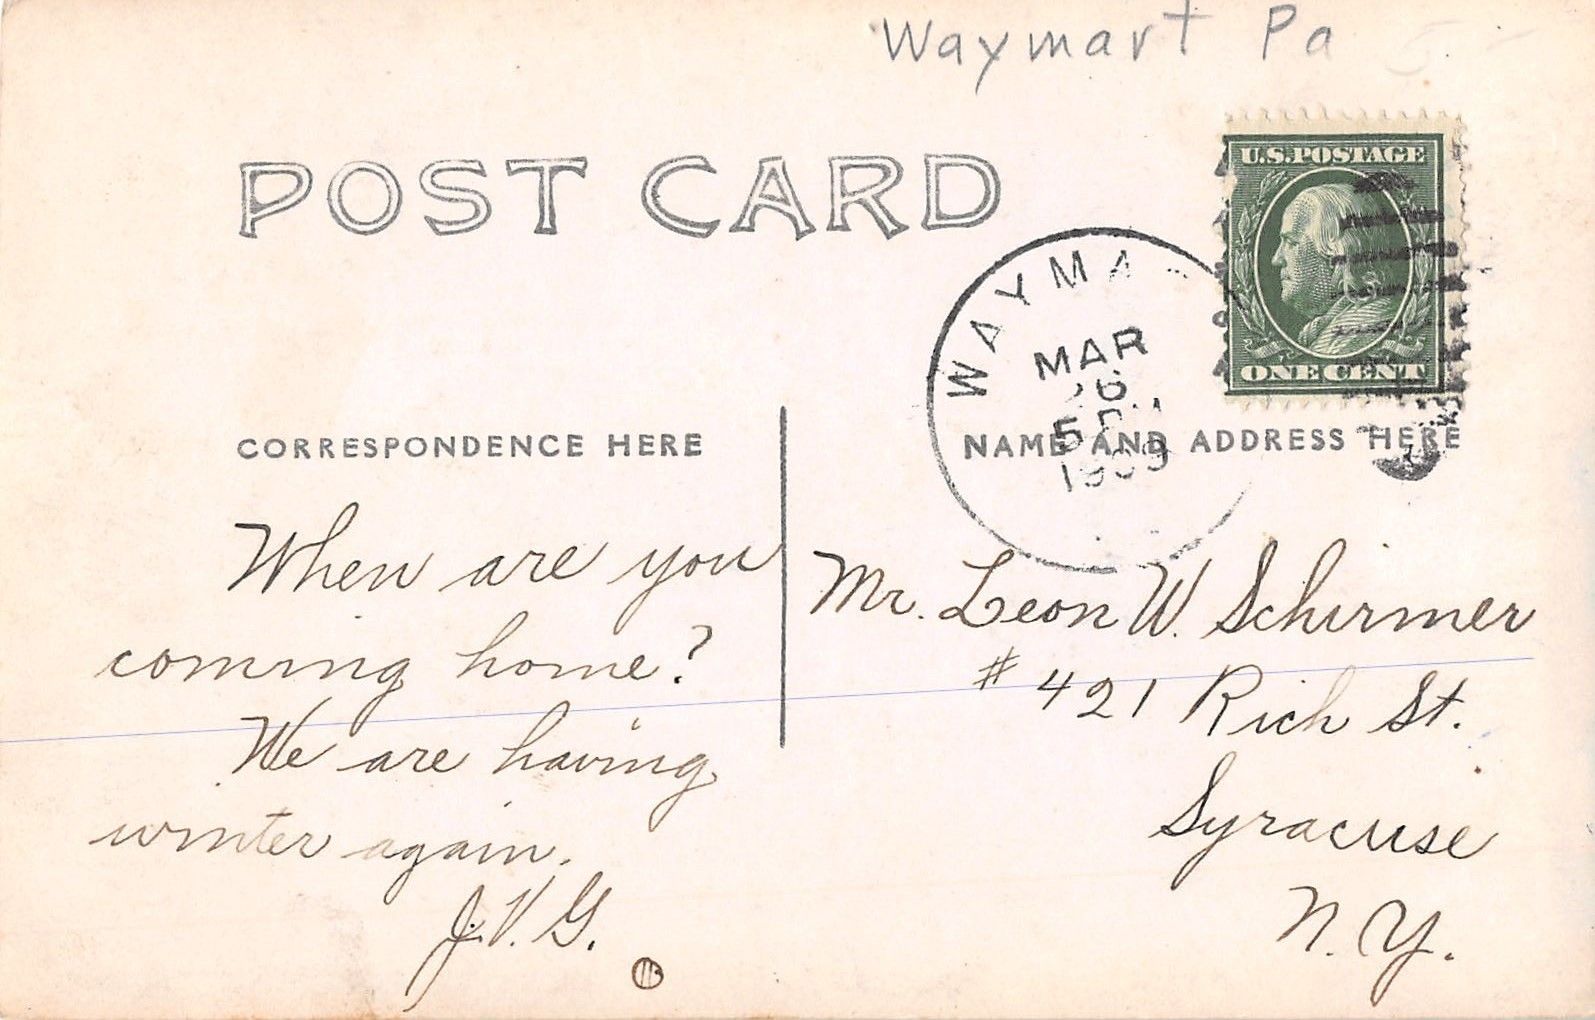 Waymart Pa
POST CARD
U.S. POSTAGE
ONE CENT
WAYMA
MAR
6
5
1909
CORRESPONDENCE HERE
NAME AND ADDRESS HERE
When are you
coming home?
We are having
winter again.
J.V.G.
Mr. Leon W. Schirmer
# 421 Rich St.
Syracuse
N.Y.